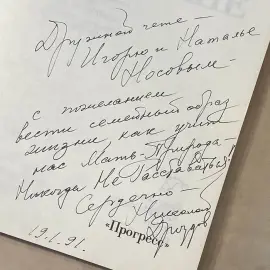 Дружной чете –
Игорю и Наталье
Носовым –
с пожеланием
вести семейный образ
жизни, как учит
нас Мать-Природа –
Никогда Не Расставаться!
Сердечно –
Николай
Дроздов
19.1.91.
«Прогресс»